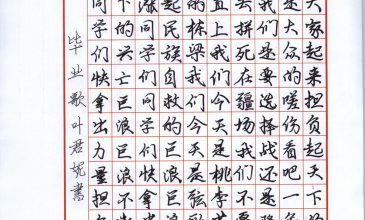 大家起来担负起天下
是大众的嗟伤看吧一
们是要选择战还是
去拼死在疆场我们不
直上我们今天是桃李
的栋梁我们今天是弦
起民族自救的巨浪巨
涨同学们同学们快拿
下的兴亡巨浪巨浪不
同学们快拿出力量担
毕业歌叶君妮书